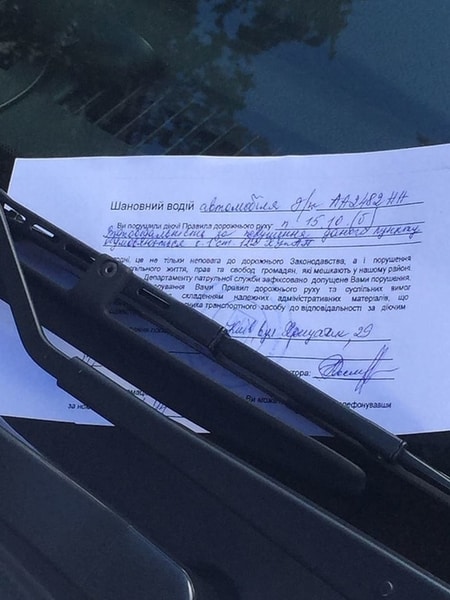 Шановний водій автомобіля д/н АА2482НН
Ви порушили діючі Правила дорожнього руху: п 15 10 (б)
Відповідальність за порушення даного пункту
ст 122 КУпАП
це не тільки неповага до дорожнього Законодавства, а і порушення
життя, прав та свобод громадян, які мешкають у нашому районі
Департаменту патрульної служби зафіксовано допущене Вами порушення
Вами Правил дорожнього руху та суспільних вимог
складенням належних адміністративних матеріалів, що
транспортного засобу до відповідальності за діючим
Київ вул Хрещатик, 29
тора:
Ви може
за ном